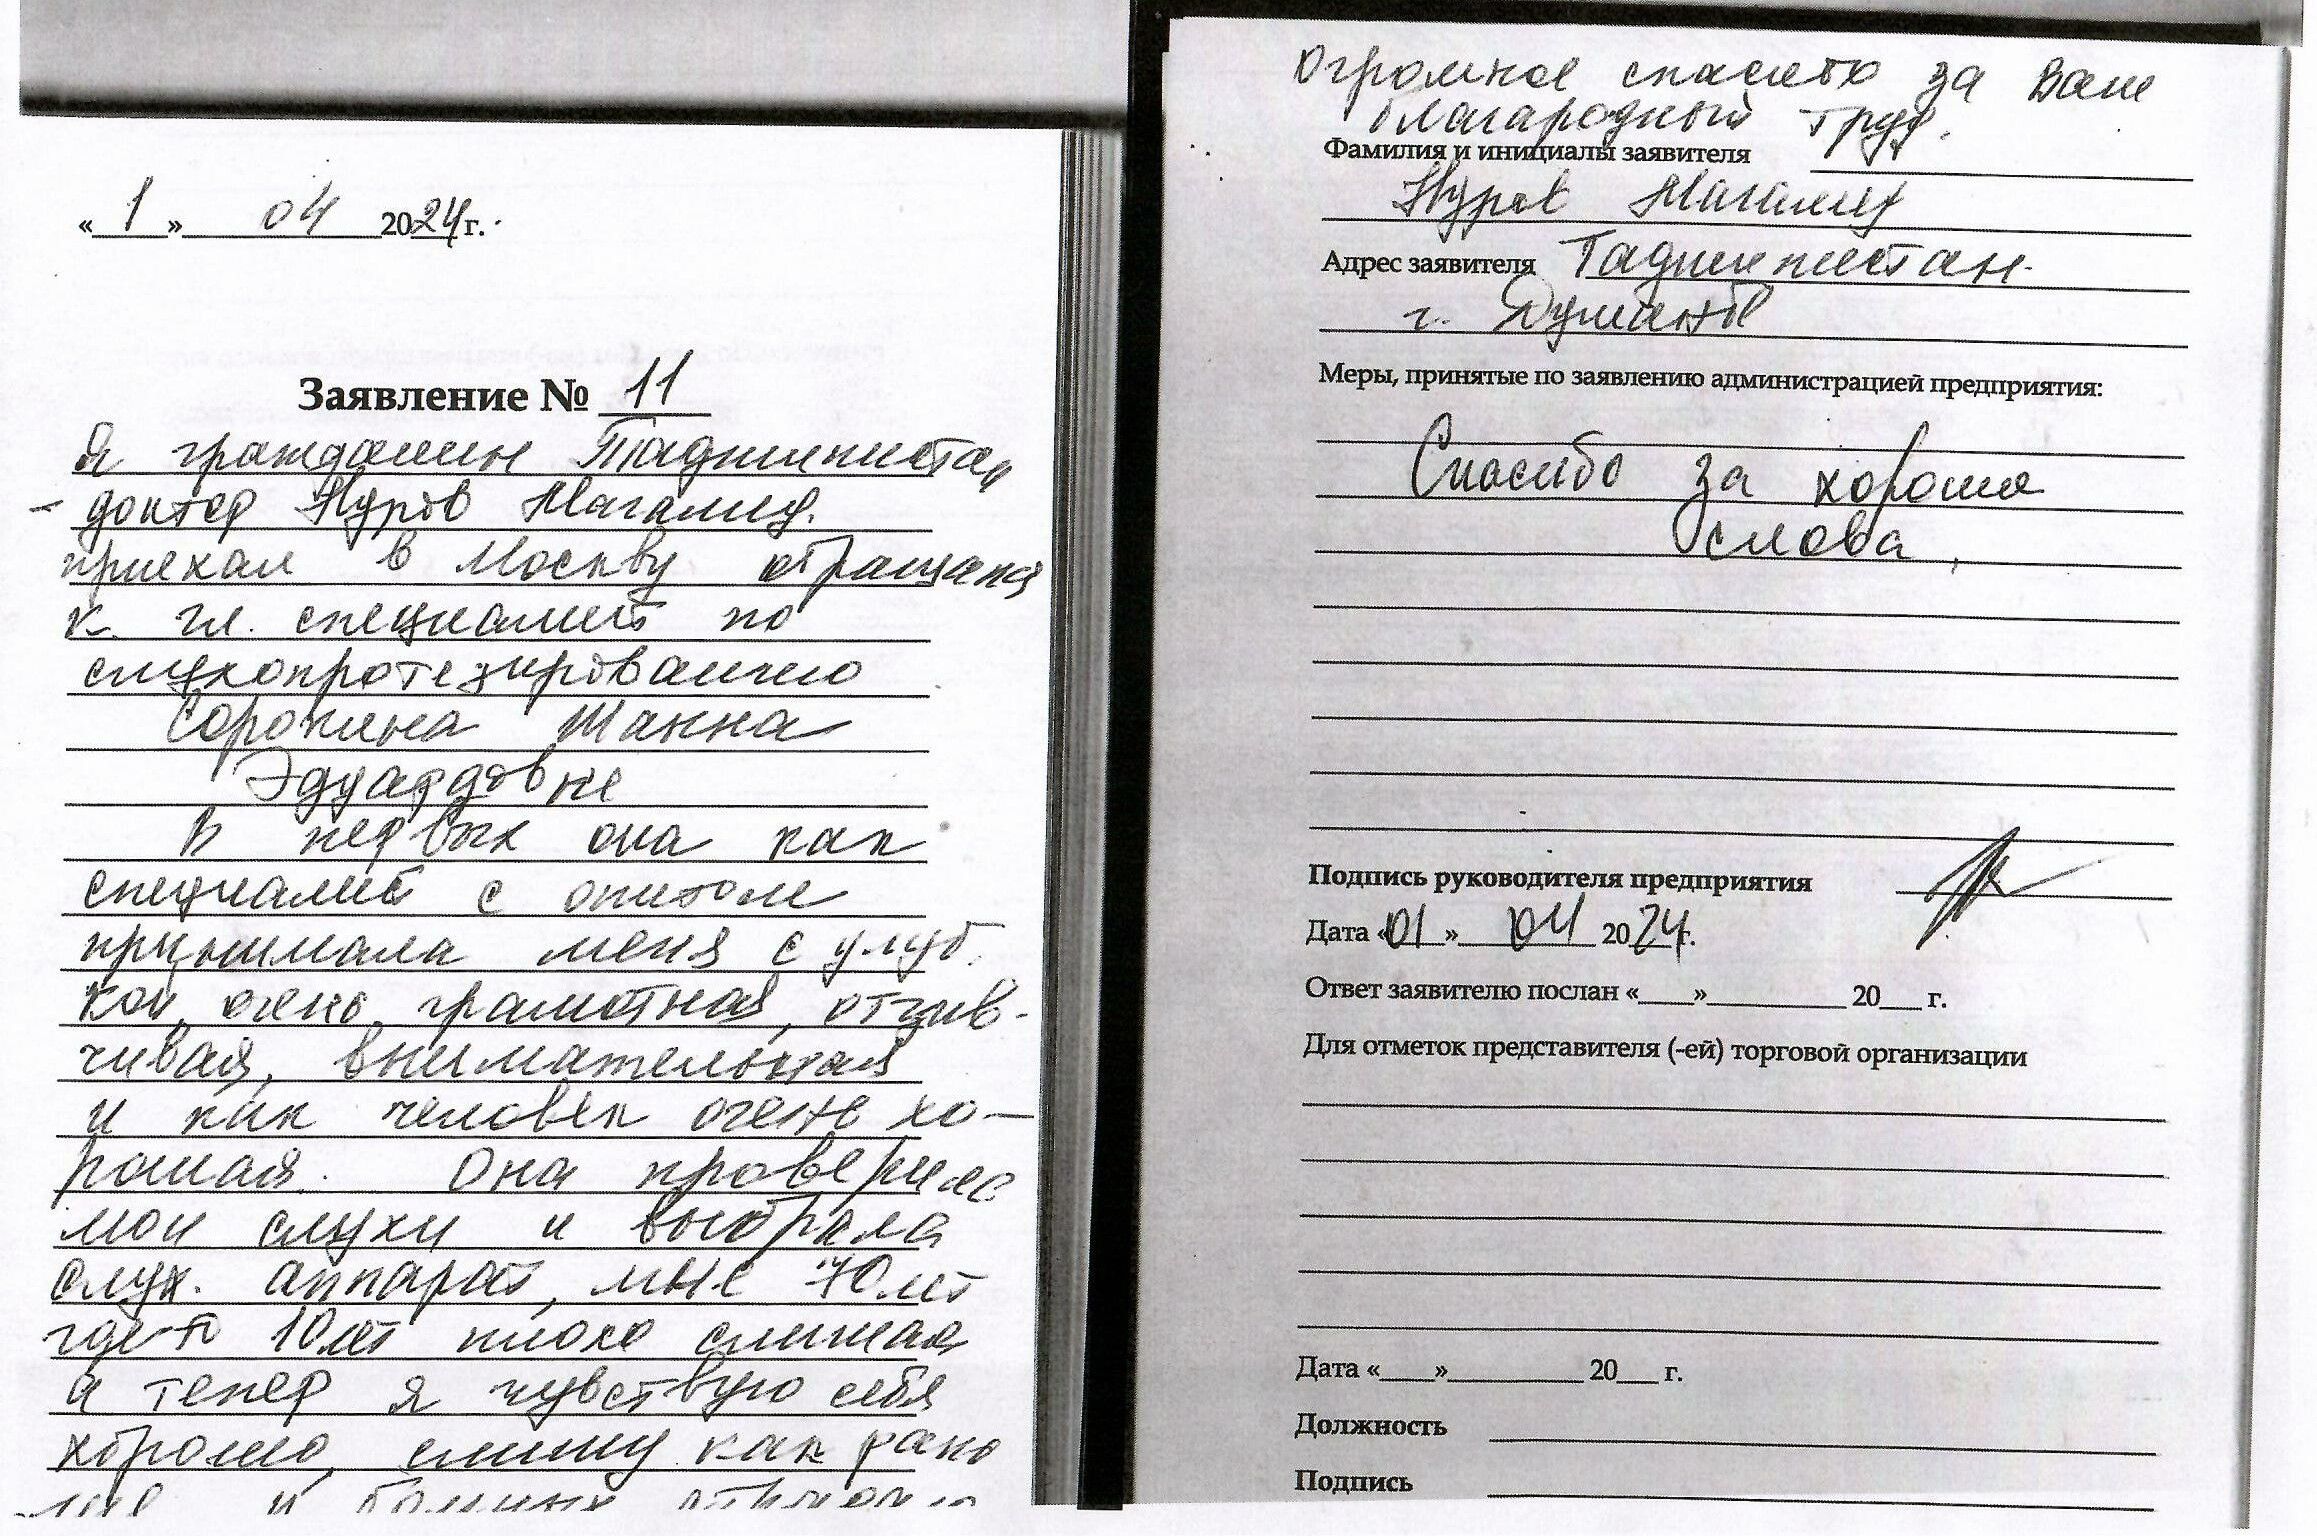 «1» 04 2024г.
Заявление № 11
Я гражданин Таджикистан
- доктор Нуров Магамед.
приехал в Москву обращался
к гл. специалист по
слухопротезированию
Сорокина Жанна
Эдуардовне
В первых она как
специалист с опитом
принимала меня с улыб
кой, очень грамотная, отзыв-
чивая, внимательная
и как человек очень хо-
рошая. Она проверила
мои слухи и выбрала
слух. аппарат, мне 70 лет
где-то 10 лет плохо слышал
а тепер я чувствую себя
хорошо, слишу как рано
и
Огромное спасибо за Ваш
благародный труд.
Фамилия и инициалы заявителя
Нуров Магамед
Адрес заявителя Таджикистан.
г. Душанбе
Меры, принятые по заявлению администрацией предприятия:
Спасибо за хорошие
слова,
Подпись руководителя предприятия
Дата «01» 04 2024г.
Ответ заявителю послан «___»________ 20__ г.
Для отметок представителя (-ей) торговой организации
Дата «___»________ 20__ г.
Должность
Подпись